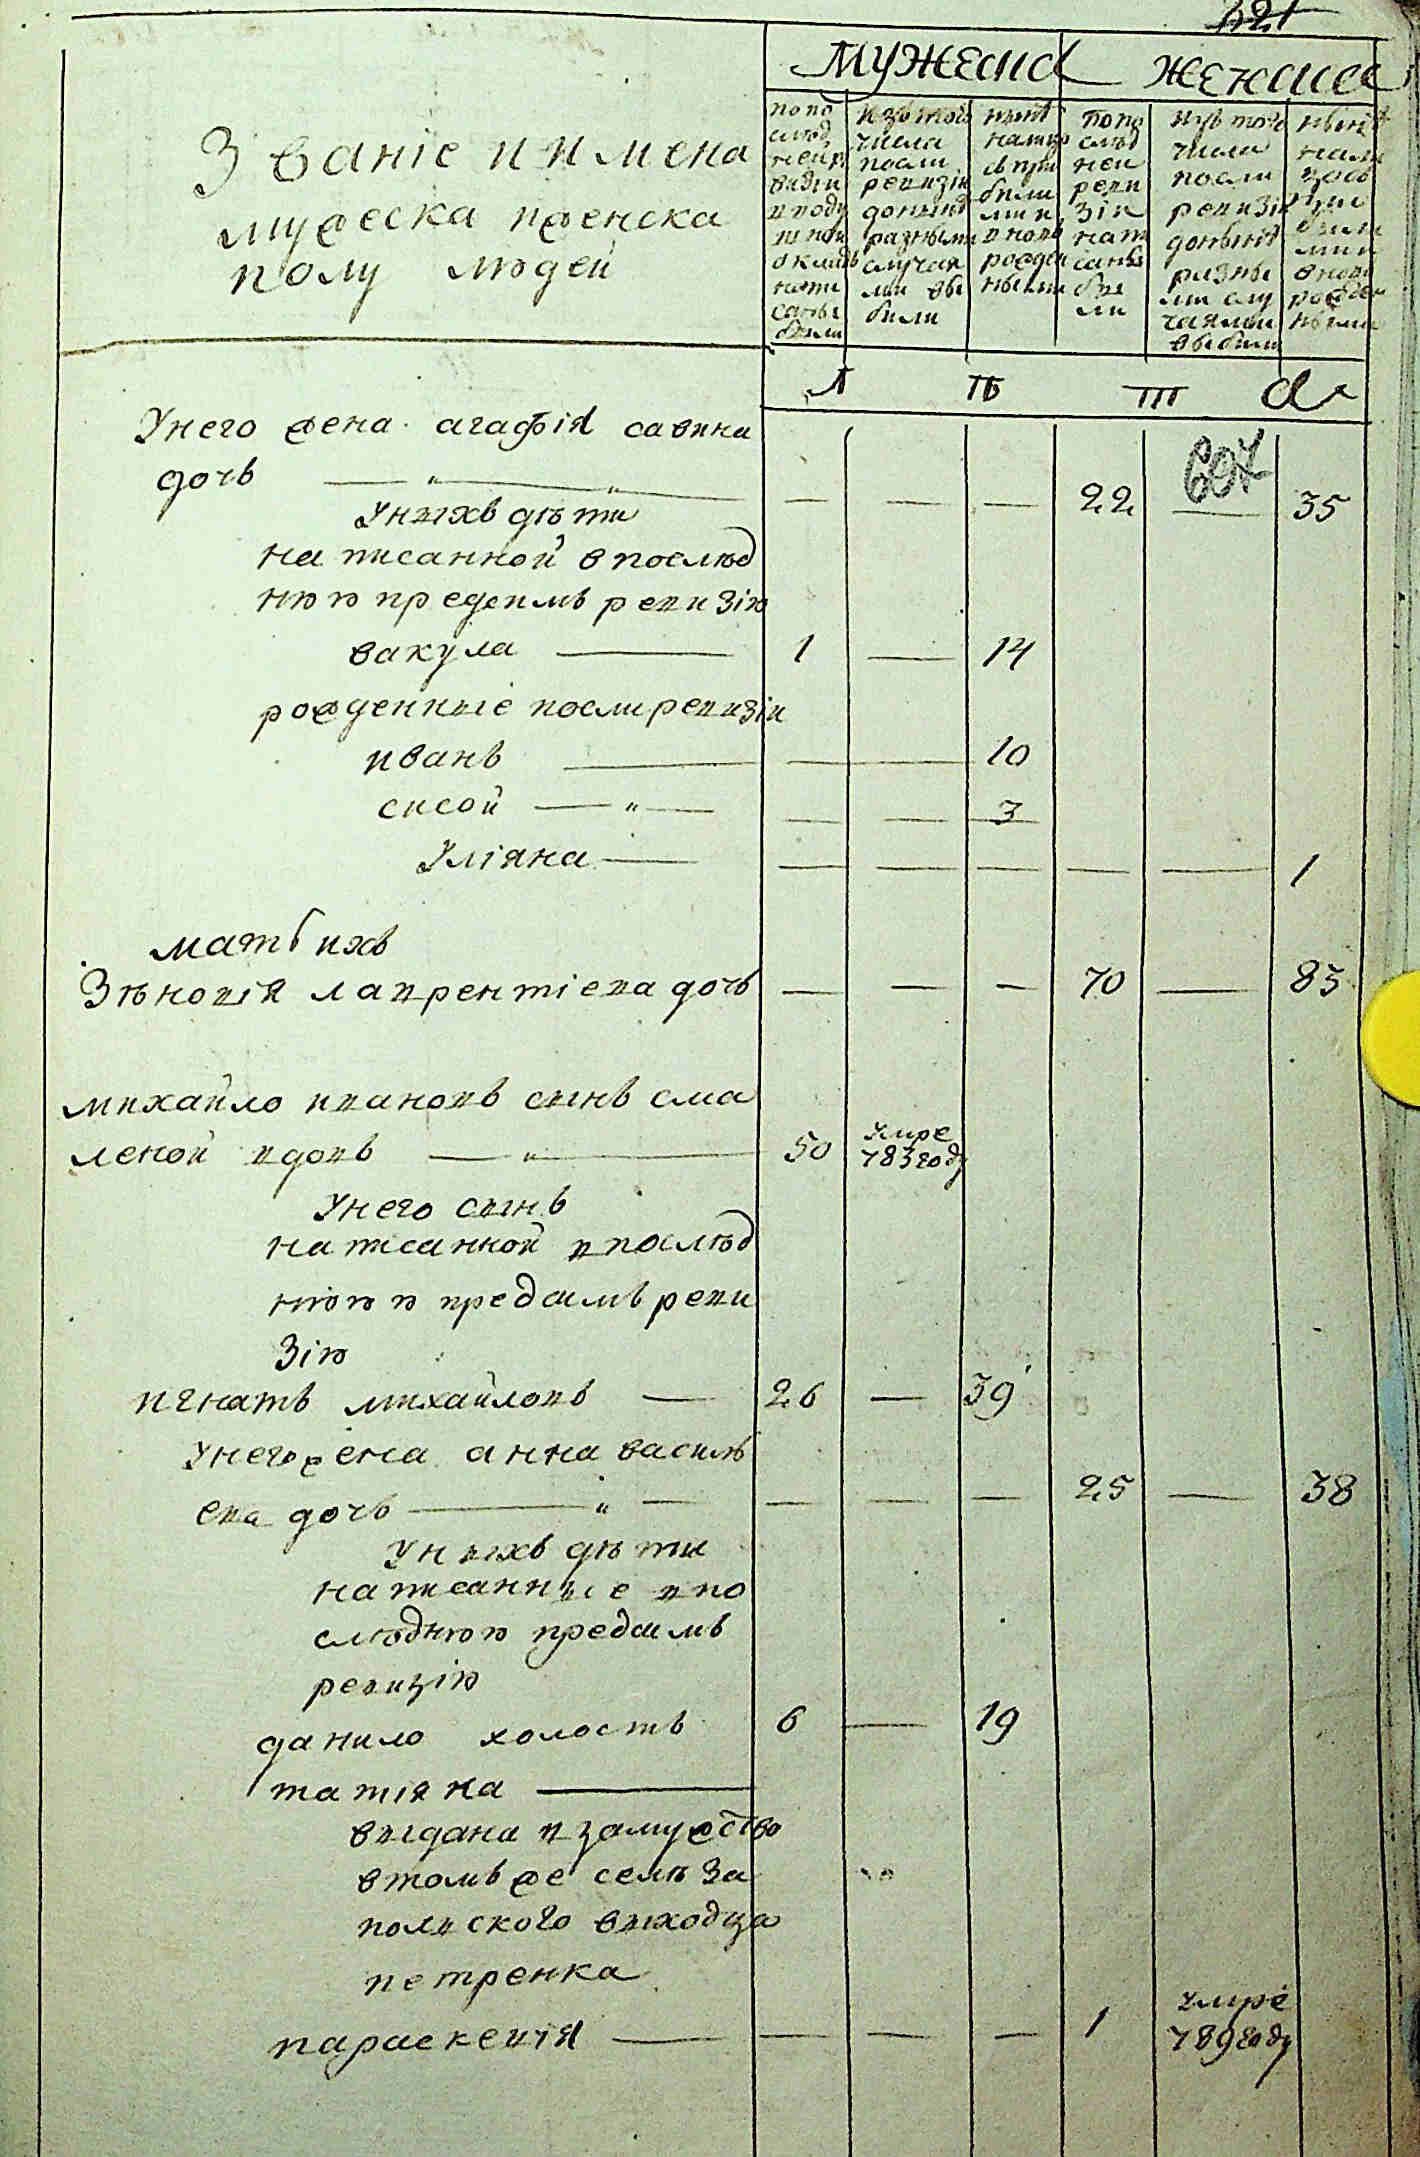 мужеска
женска
Званіе и имена
мужеска и женска
полу людей
по по
слѣд
ней ре
визіи
и поду
шной
окладъ
напи
саны
были
изъ того
числа
посли
ревизіи
донынѣ
разными
случая
ми вы
были
нынѣ
налицо
съ при
были
ми и
вново
рожден
ными
по по
слѣд
ней
реви
зіи
нап
саны
бы
ли
изъ того
числа
посли
ревизіи
донынѣ
разны
ми слу
чаями
выбыли
нынѣ
нали
цо съ
при
были
ми и
вново
рожден
ными
607
У него жена агафія савина
дочь 22 35
У нихъ дѣти
написанной в послѣд
нюю предъ симъ ревизію
вакула 1 14
рожденные посли ревизіи
иванъ 10
сисой 3
Уліяна 1
мать ихъ
Зѣновія лаврентіева дочь 70 83
михайло ивановъ сынъ сма
леной вдовъ 50 умре 783 году
У него сынъ
написанной в послѣд
нюю предъ симъ реви
зію
игнатъ михайловъ 26 39
У него жена анна василь
ева дочь 25 38
У нихъ дѣти
написанные в по
слѣднюю предъ симъ
ревизію
данило холостъ 6 19
татіяна
выдана в замужство
в томъ же селѣ за
полского выходца
петренка
параскевія 1 умре 789 году